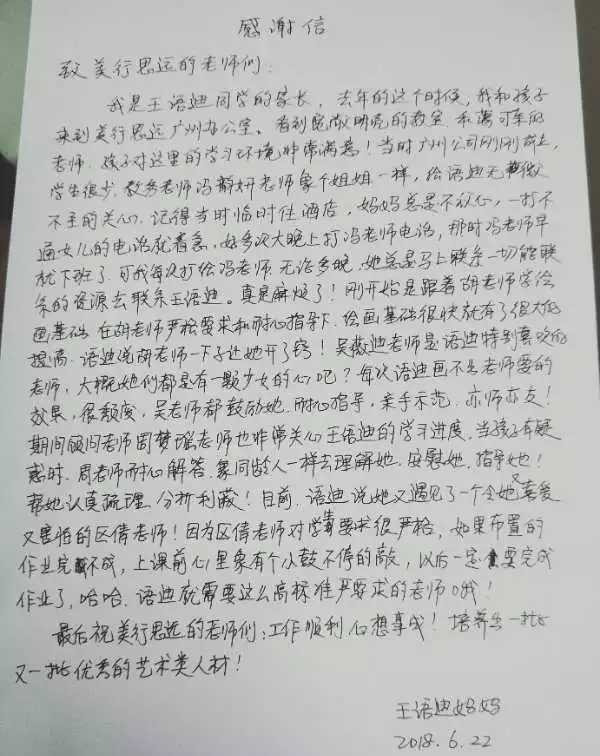 感谢信
致美行思远的老师们:
我是王语迪同学的家长,去年的这个时候,我和孩子
来到美行思远广州办公室、看到宽敞明亮的教室和满可亲的
老师.孩子对这里的学习环境非常满意!当时广州公司刚刚成立,
学生很少.教务老师冯静妍老师象个姐姐一样,给语迪无微
不至的关心.记得当时临时住酒店,妈妈总是不放心,一打不
通女儿的电话就着急,好多次大晚上打冯老师电话,那时冯老师早
就下班了.可我每次打给冯老师.无论多晚,她总是马上联系一切能联
系的资源去联系王语迪。真是麻烦了!刚开始是跟着胡老师学绘
画基础.在胡老师严格要求和耐心指导下.绘画基础很快就有了很大的
提高.语迪说胡老师一下子让她开了窍!吴薇迪老师是语迪特别喜欢的
老师,大概她们都是有一颗少女的心吧?每次语迪画不出老师要的
效果,很颓废,吴老师都鼓励她.耐心指导,亲手示范.亦师亦友!
期间顾问老师周梦瑶老师也非常关心王语迪的学习进度.当孩子有疑
惑时.周老师耐心解答.象同龄人一样去理解她.安慰她.指导她!
帮她认真疏理.分析利蔽!目前.语迪说她又遇见了一个令她又喜爱
又害怕的区倩老师!因为区倩老师对学习要求很严格,如果布置的
作业完不成,上课前心里象有个小鼓不停的敲,以后一定要完成
作业了,哈哈.语迪就需要这么高标准严要求的老师哦!
最后祝美行思远的老师们:工作顺利心想事成!培养出一批
又一批优秀的艺术类人材!
王语迪妈妈
2018.6.22